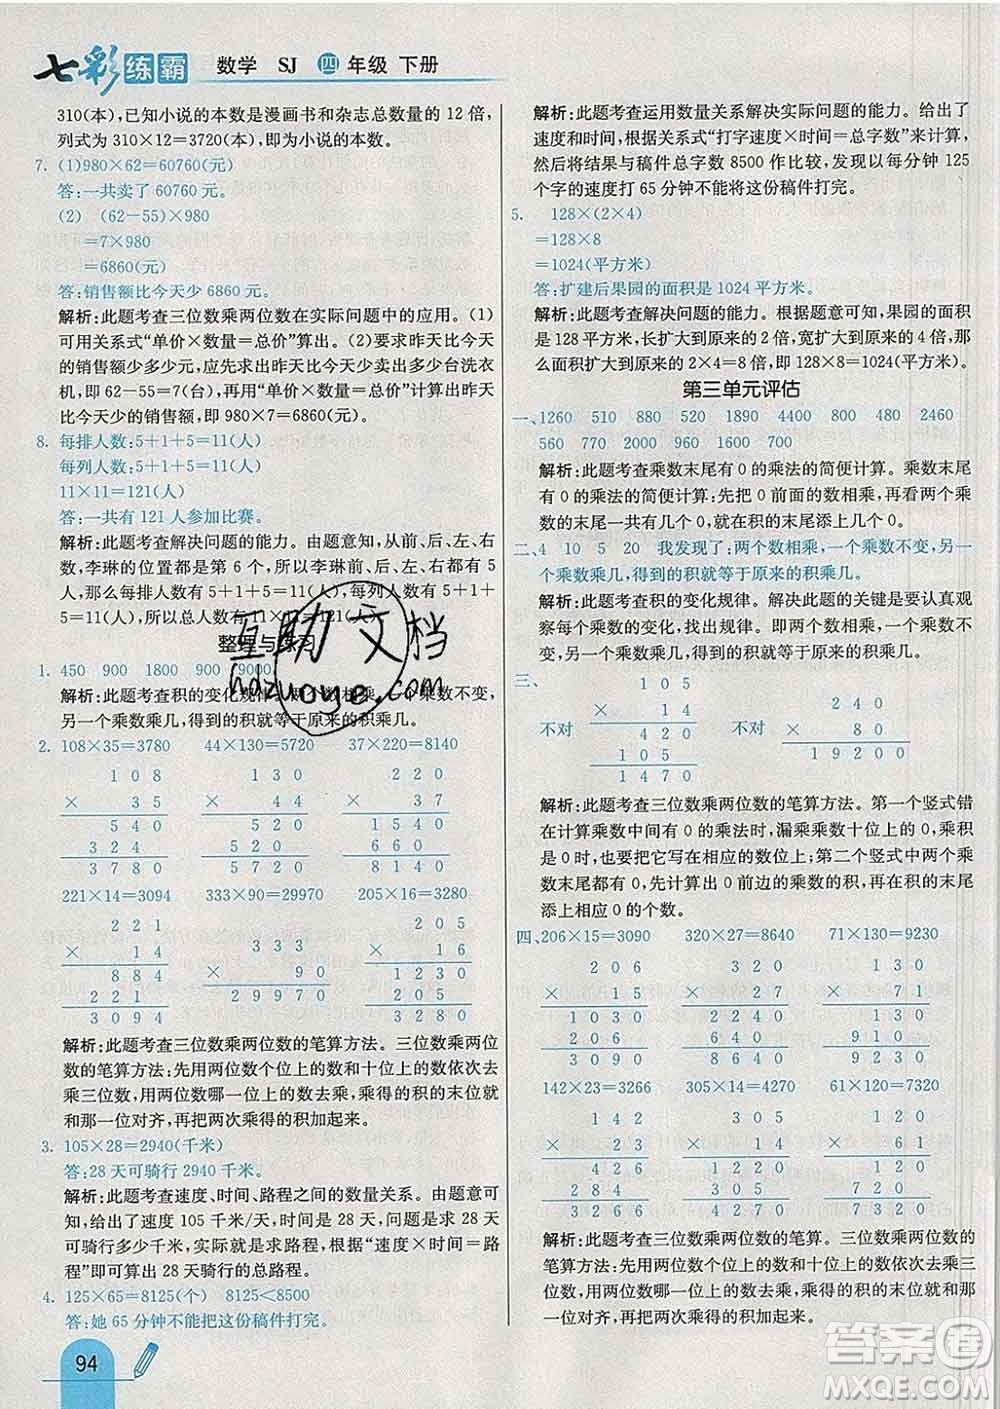 七彩练霸 数学 SJ 四年级 下册
310(本),已知小说的本数是漫画书和杂志总数量的 12 倍,
列式为 310×12=3720(本),即为小说的本数。
7. (1)980×62=60760(元)
答:一共卖了 60760 元。
(2) (62-55)×980
=7×980
=6860(元)
答:销售额比今天少 6860 元。
解析:此题考查三位数乘两位数在实际问题中的应用。(1)
可用关系式“单价×数量=总价”算出。(2)要求昨天比今天
销售额少多少元,应先求出昨天比今天少卖出多少台洗衣
机,即 62-55=7(台),再用“单价×数量=总价”计算出昨天
比今天少的销售额,即 980×7=6860(元)。
8. 每排人数:5+1+5=11(人)
每列人数:5+1+5=11(人)
11×11=121(人)
答:一共有 121 人参加比赛。
解析:此题考查解决问题的能力。由题意知,从前、后、左、右
数,李琳的位置都是第 6 个,所以李琳前、后、左、右都有 5
人,那么每排人数:5+1+5=11(人),每列人数:5+1+
5=11(人),所以总人数:11×11=121(人)。
整理与练习
1. 450 900 1800 900 9000
解析:此题考查积的变化规律。两个数相乘,一个乘数不变,
另一个乘数乘几,得到的积就等于原来的积乘几。
2. 108×35=3780 44×130=5720 37×220=8140
1 0 8 1 3 0 2 2 0
× 3 5 × 4 4 × 3 7
5 4 0 5 2 0 1 5 4 0
3 2 4 5 2 0 6 6 0
3 7 8 0 5 7 2 0 8 1 4 0
221×14=3094 333×90=29970 205×16=3280
2 2 1 3 3 3 2 0 5
× 1 4 × 9 0 × 1 6
8 8 4 2 9 9 7 0 1 2 3 0
2 2 1 2 0 5
3 0 9 4 3 2 8 0
解析:此题考查三位数乘两位数的笔算方法。三位数乘两位
数的笔算方法:先用两位数个位上的数和十位上的数依次去
乘三位数,用两位数哪一位上的数去乘,乘得的积的末位就
和那一位对齐,再把两次乘得的积加起来。
3. 105×28=2940(千米)
答:28 天可骑行 2940 千米。
解析:此题考查速度、时间、路程之间的数量关系。由题意可
知,给出了速度 105 千米/天,时间是 28 天,问题求 28 天
可骑行多少千米,实际就是求路程,根据“速度×时间=路
程”即可算出 28 天骑行的总路程。
4. 125×65=8125(个) 8125<8500
答:她 65 分钟不能把这份稿件打完。
解析:此题考查运用数量关系解决实际问题的能力。给出了
速度和时间,根据关系式“打字速度×时间=总字数”来计算,
然后将结果与稿件总字数 8500 作比较,发现以每分钟 125
个字的速度打 65 分钟不能将这份稿件打完。
5. 128×(2×4)
=128×8
=1024(平方米)
答:扩建后果园的面积是 1024 平方米。
解析:此题考查解决问题的能力。根据题意可知,果园的面积
是 128 平方米,长扩大到原来的 2 倍,宽扩大到原来的 4 倍,
面积就扩大到原来的 2×4=8 倍,即 128×8=1024(平方米)。
第三单元评估
一、1260 510 880 520 1890 4400 900 480 2460
560 770 2000 1600 700
解析:此题考查乘数末尾有 0 的乘法的简便计算。乘数末尾
有 0 的乘法的简便计算:先把 0 前面的数相乘,再看两个乘
数的末尾一共有几个 0,就在积的末尾添上几个 0。
二、4 10 5 20 我发现了:两个数相乘,一个乘数不变,另一
个乘数乘几,得到的积就等于原来的积乘几。
解析:此题考查积的变化规律。解决此题的关键是要认真观
察每个乘数的变化,找出规律。即两个数相乘,一个乘数不
变,另一个乘数乘几,得到的积就等于原来的积乘几。
三、 1 0 5 2 4 0
不对 × 1 4 不对 × 8 0
4 2 0 1 9 2 0 0
1 0 5
1 4 7 0
解析:此题考查三位数乘两位数的笔算方法。第一个竖式错
在计算乘数中间有 0 的乘法时,漏乘乘数十位上的 0,乘积
是 0,也要把它写在相应的数位上;第二个竖式中两个乘
数末尾都有 0,先计算出 0 前边的乘数的积,再在积的末尾
添上相应 0 的个数。
四、206×15=3090 320×27=8640 71×130=9230
2 0 6 3 2 0 1 3 0
× 1 5 × 2 7 × 7 1
1 0 3 0 2 2 4 0 1 3 0
2 0 6 6 4 0 9 1 0
3 0 9 0 8 6 4 0 9 2 3 0
142×23=3266 305×14=4270 61×120=7320
1 4 2 3 0 5 1 2 0
× 2 3 × 1 4 × 6 1
4 2 6 1 2 2 0 1 2 0
2 8 4 3 0 5 7 2 0
3 2 6 6 4 2 7 0 7 3 2 0
解析:此题考查三位数乘两位数的笔算。三位数乘两位数的
笔算方法:先用两位数个位上的数和十位上的数依次去乘三
位数,用两位数哪一位上的数去乘,乘得的积的末位就和那
一位对齐,再把两次乘得的积加起来。
94
互助文档
hdzuoye.com
答案圈
MXQE.COM